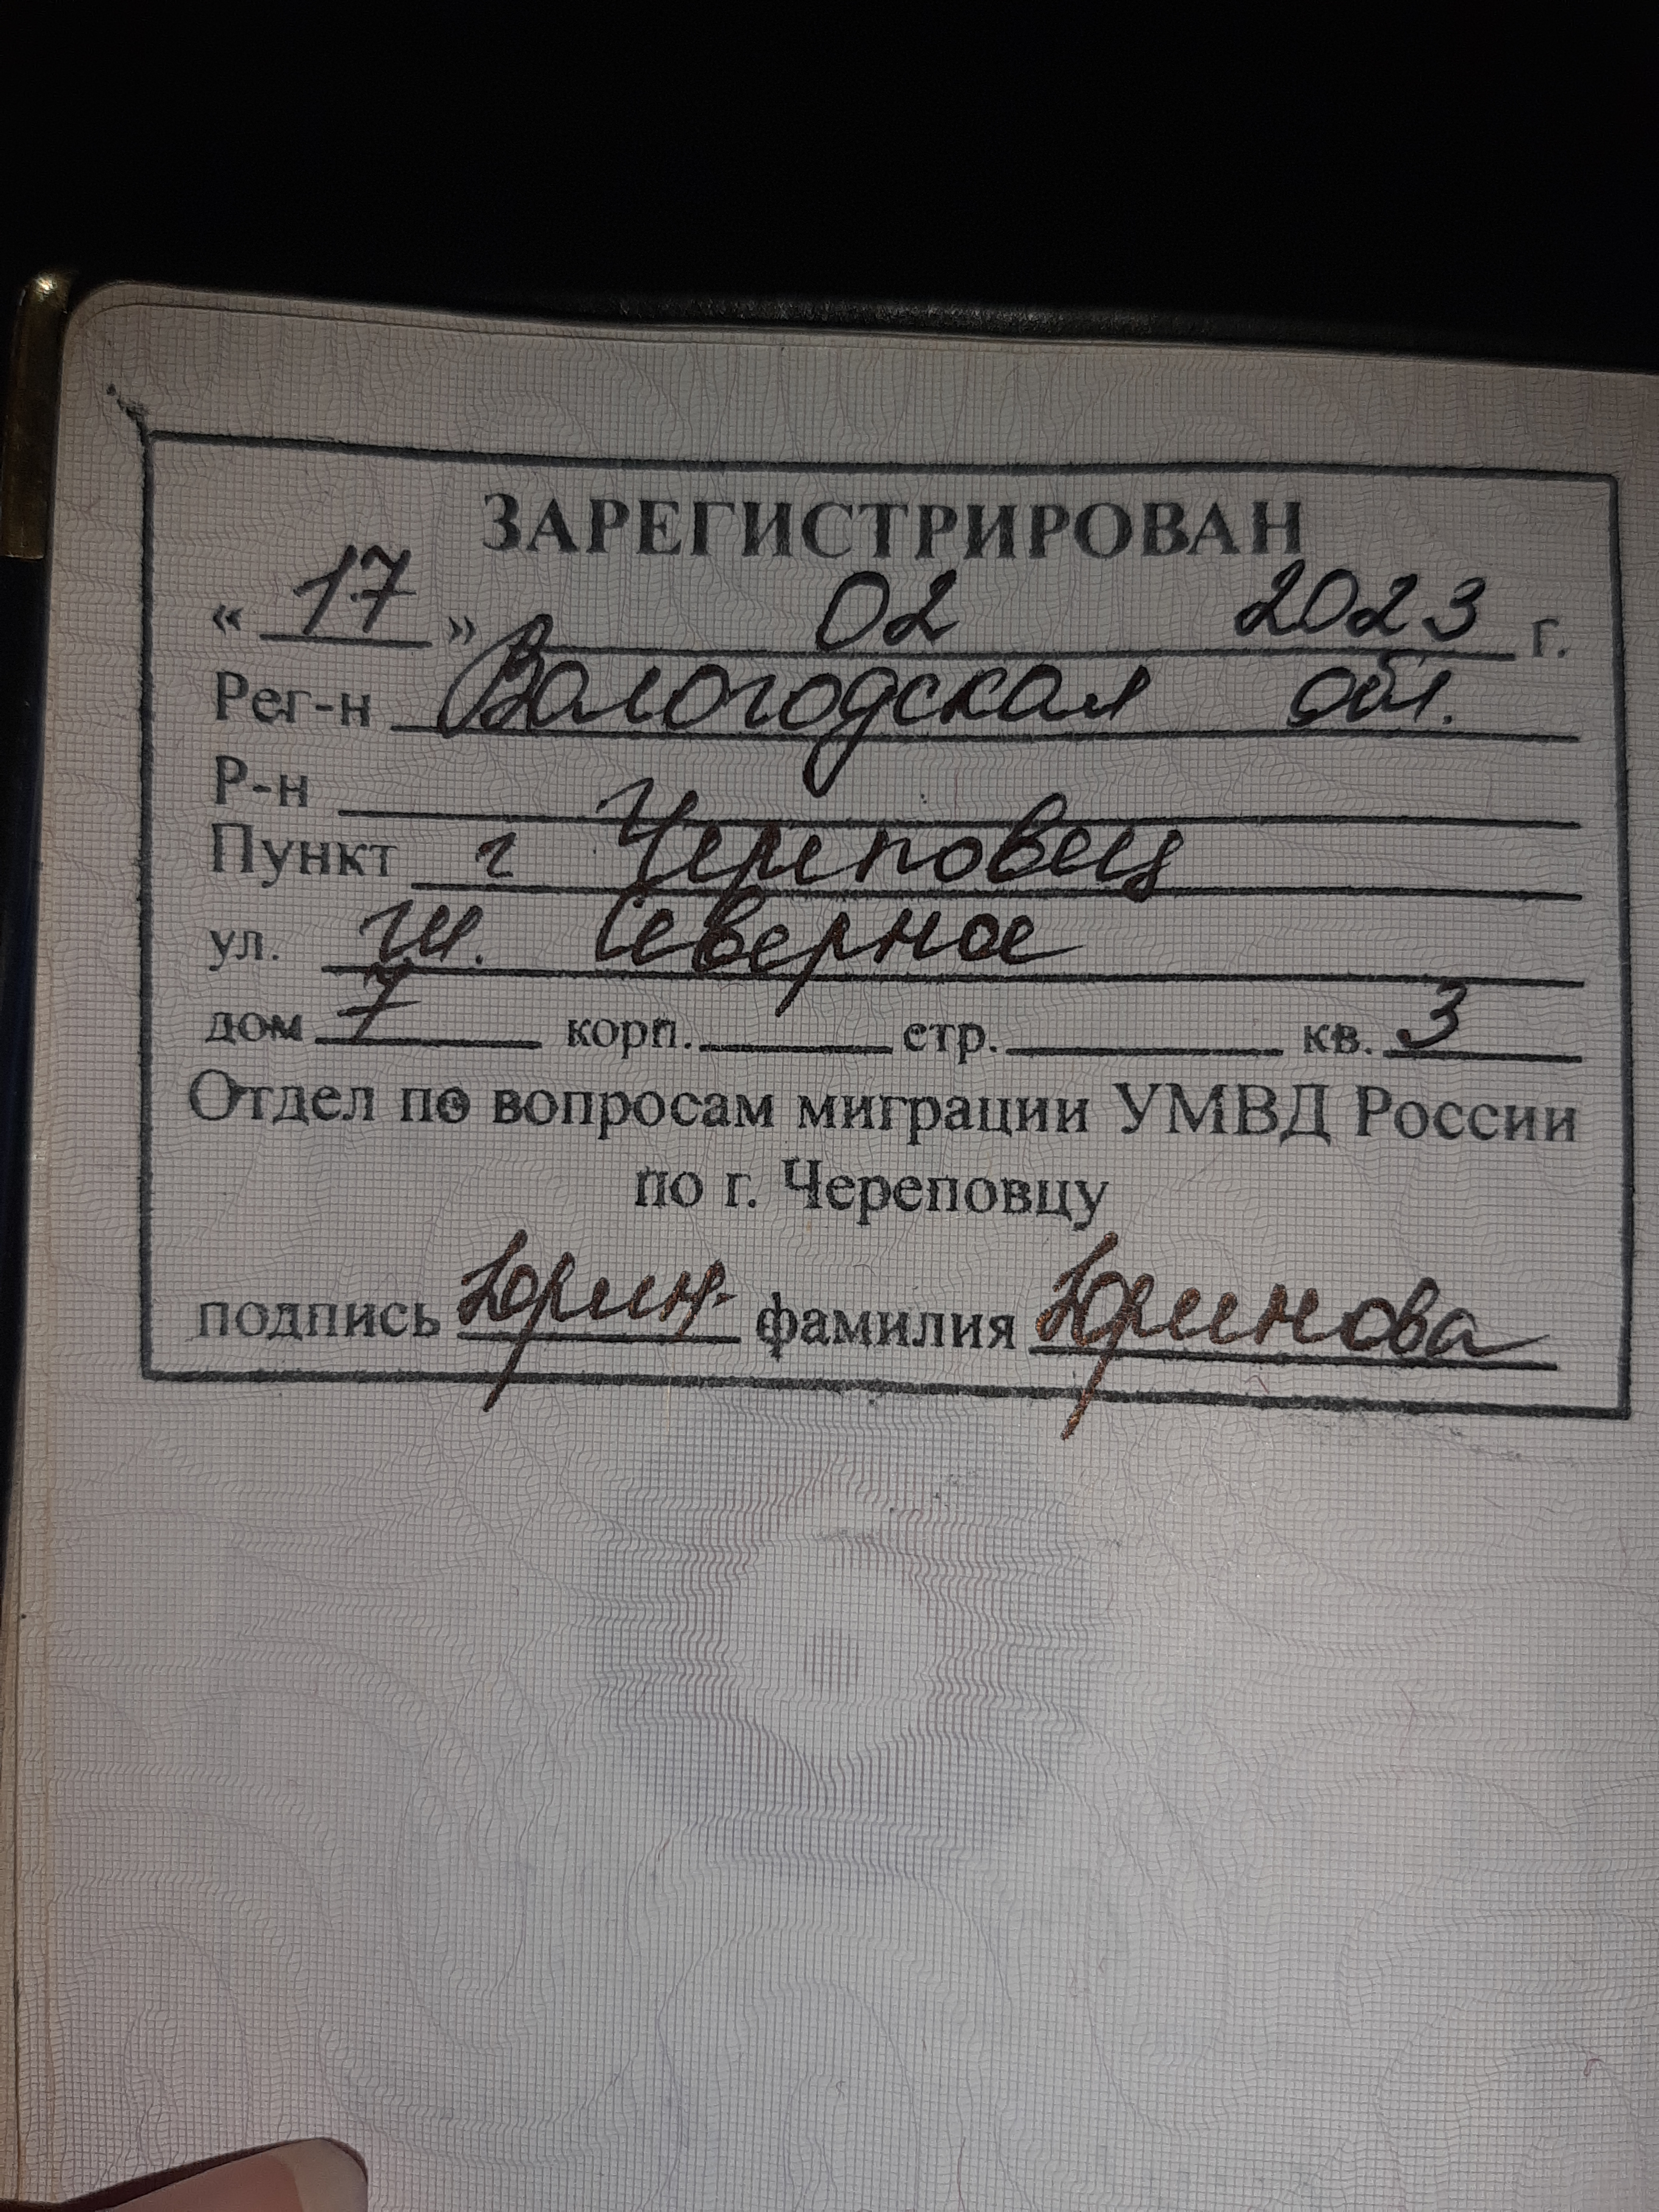 ЗАРЕГИСТРИРОВАН
« 17 » 02 2023 г.
Рег-н Вологодская обл.
Р-н
Пункт г Череповец
ул. ш. Северное
дом 7 корп. стр. кв. 3
Отдел по вопросам миграции УМВД России
по г. Череповцу
подпись Юрин фамилия Юринова